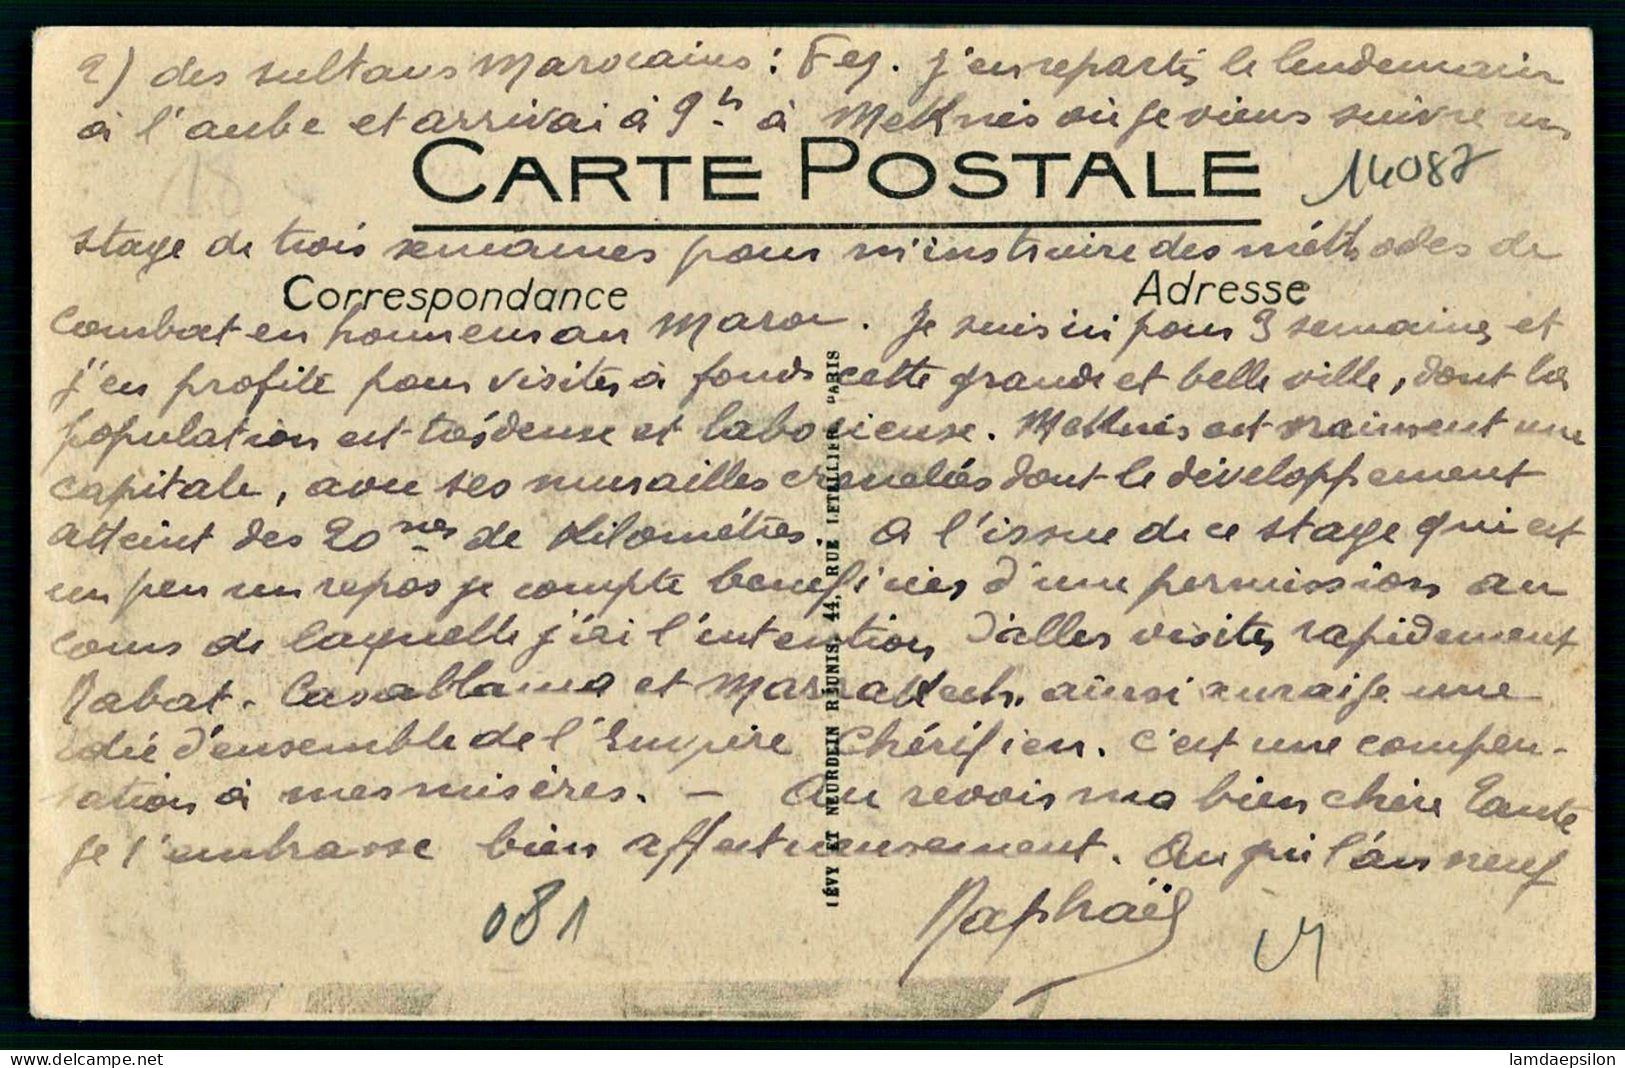 2) des sultans Marocains : Fez. j'en repartis le lendemain
à l'aube et arrivai à 9 hs à Meknès où je viens suivre un
CARTE POSTALE
14087
stage de trois semaines pour m'instruire des méthodes de
Correspondance
Adresse
combat en honneur au Maroc. Je suis ici pour 3 semaines et
j'en profite pour visiter à fond cette grande et belle ville, dont la
population est très dense et laborieuse. Meknès est vraiment une
capitale, avec ses murailles crenelées dont le développement
atteint des 20nes de kilomètres. A l'issue de ce stage qui est
un peu un repos je compte beneficier d'une permission au
cours de laquelle j'ai l'intention d'aller visiter rapidement
Rabat. Casablanca et Marrakech. ainsi aurai je une
idée d'ensemble de l'Empire Chérifien. C'est une compen-
sation à mes misères. — Au revoir ma bien chère Tante
je t'embrasse bien affectueusement. Au gui l'an neuf
Raphaël
081
LÉVY ET NEURDEIN RÉUNIS, 44, RUE LETELLIER, PARIS
lamdaepsilon